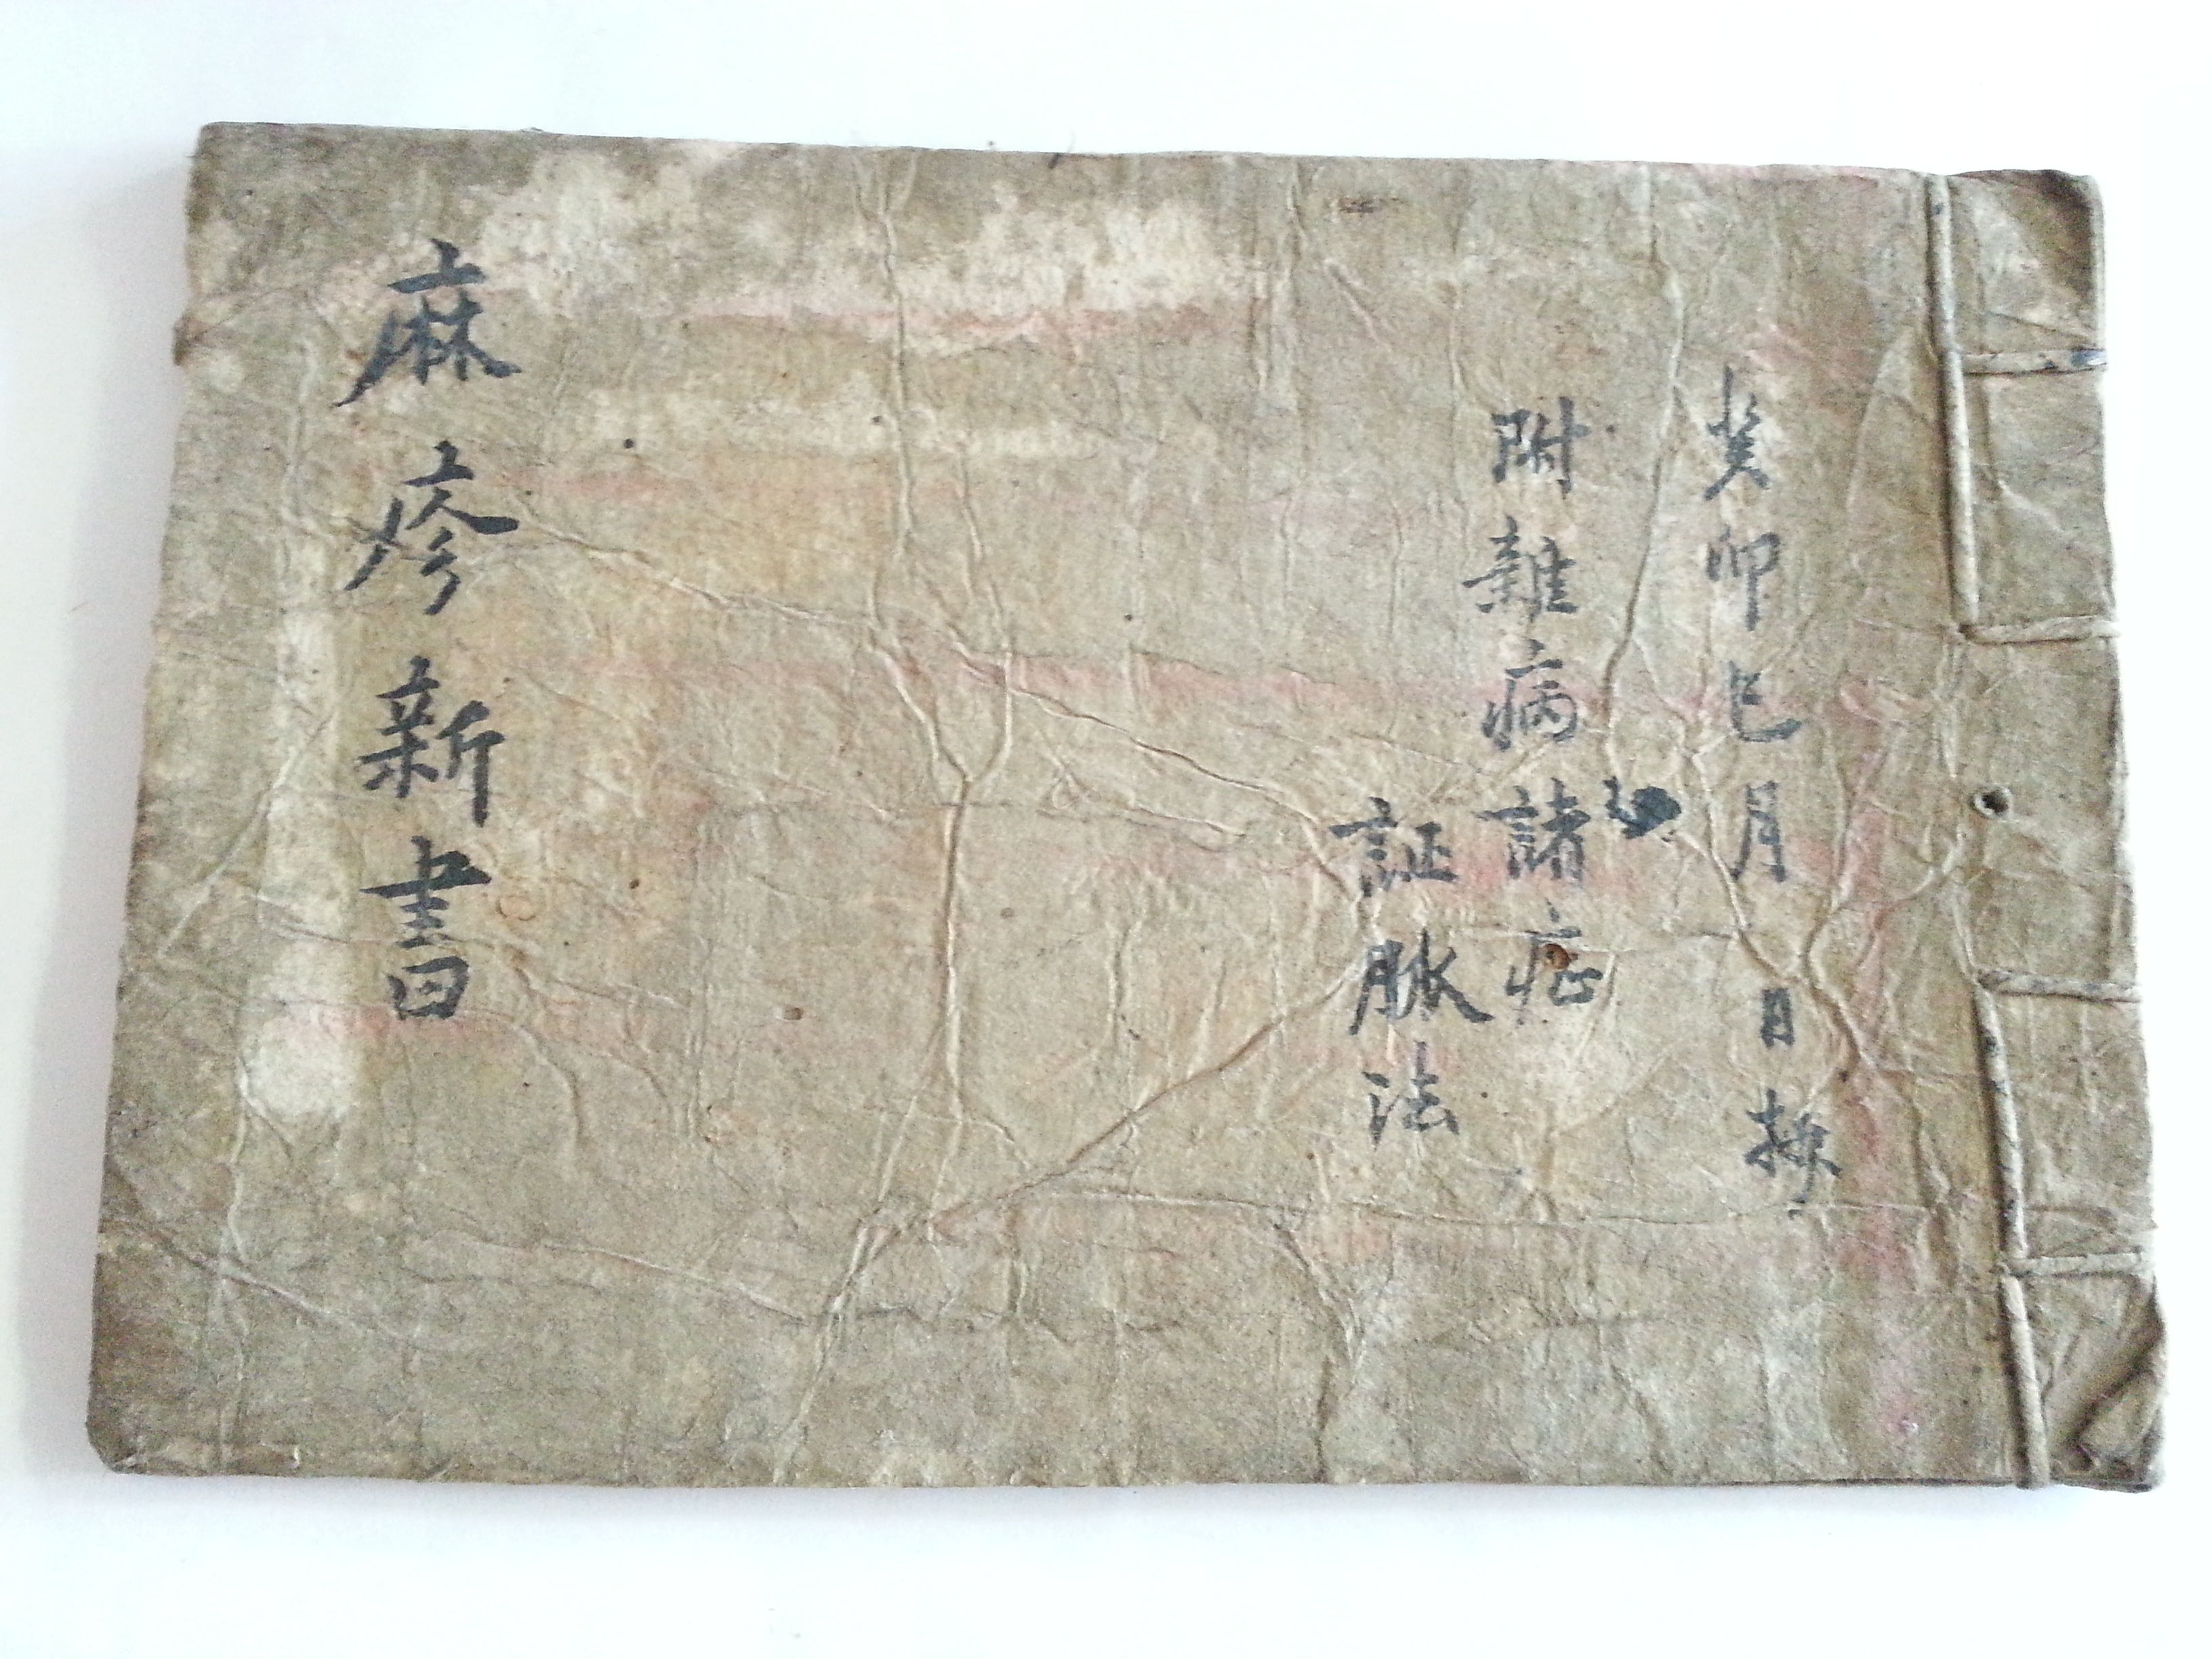 癸卯巳月　日抄
附雜病諸症
証脉法
麻疹新書